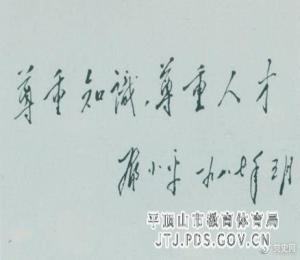 尊重知識，尊重人才
邓小平 一九八七年
平顶山市教育体育局
JTJ.PDS.GOV.CN